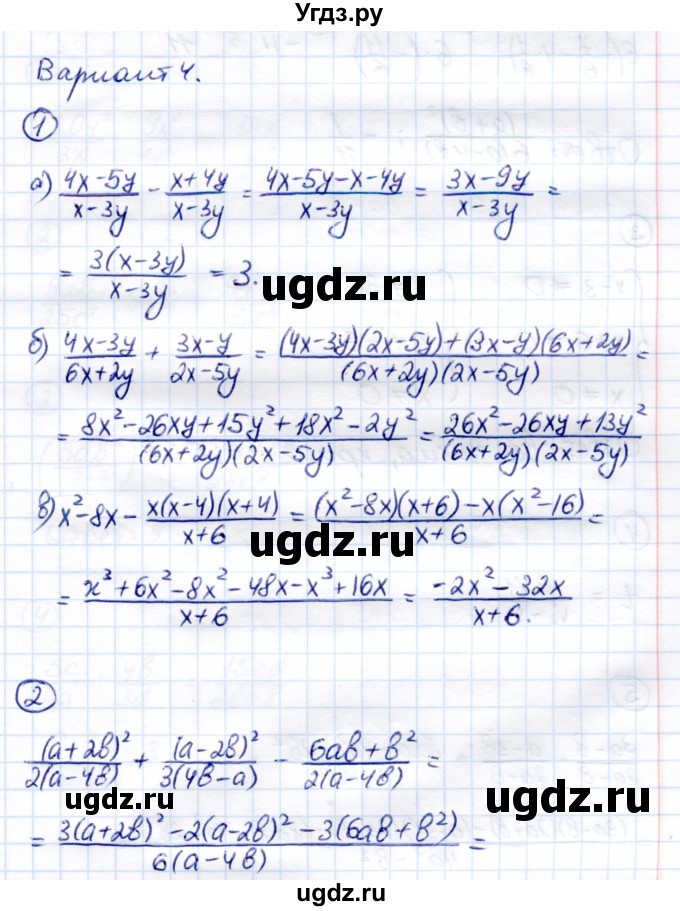 Угдз.ру
Вариант 4.
1
а) (4x-5y)/(x-3y) - (x+4y)/(x-3y) = (4x-5y-x-4y)/(x-3y) = (3x-9y)/(x-3y) =
= 3(x-3y)/(x-3y) = 3.
ugdz.ru
б) (4x-3y)/(6x+2y) + (3x-y)/(2x-5y) = ((4x-3y)(2x-5y)+(3x-y)(6x+2y))/((6x+2y)(2x-5y)) =
= (8x²-26xy+15y²+18x²-2y²)/((6x+2y)(2x-5y)) = (26x²-26xy+13y²)/((6x+2y)(2x-5y))
в) x²-8x - x(x-4)(x+4)/(x+6) = ((x²-8x)(x+6)-x(x²-16))/(x+6) =
ugdz.ru
= (x³+6x²-8x²-48x-x³+16x)/(x+6) = (-2x²-32x)/(x+6).
2
(a+2b)²/(2(a-4b)) + (a-2b)²/(3(4b-a)) - (6ab+b²)/(2(a-4b)) =
ugdz.ru
ugdz.ru
= (3(a+2b)²-2(a-2b)²-3(6ab+b²))/(6(a-4b)) =
ugdz.ru